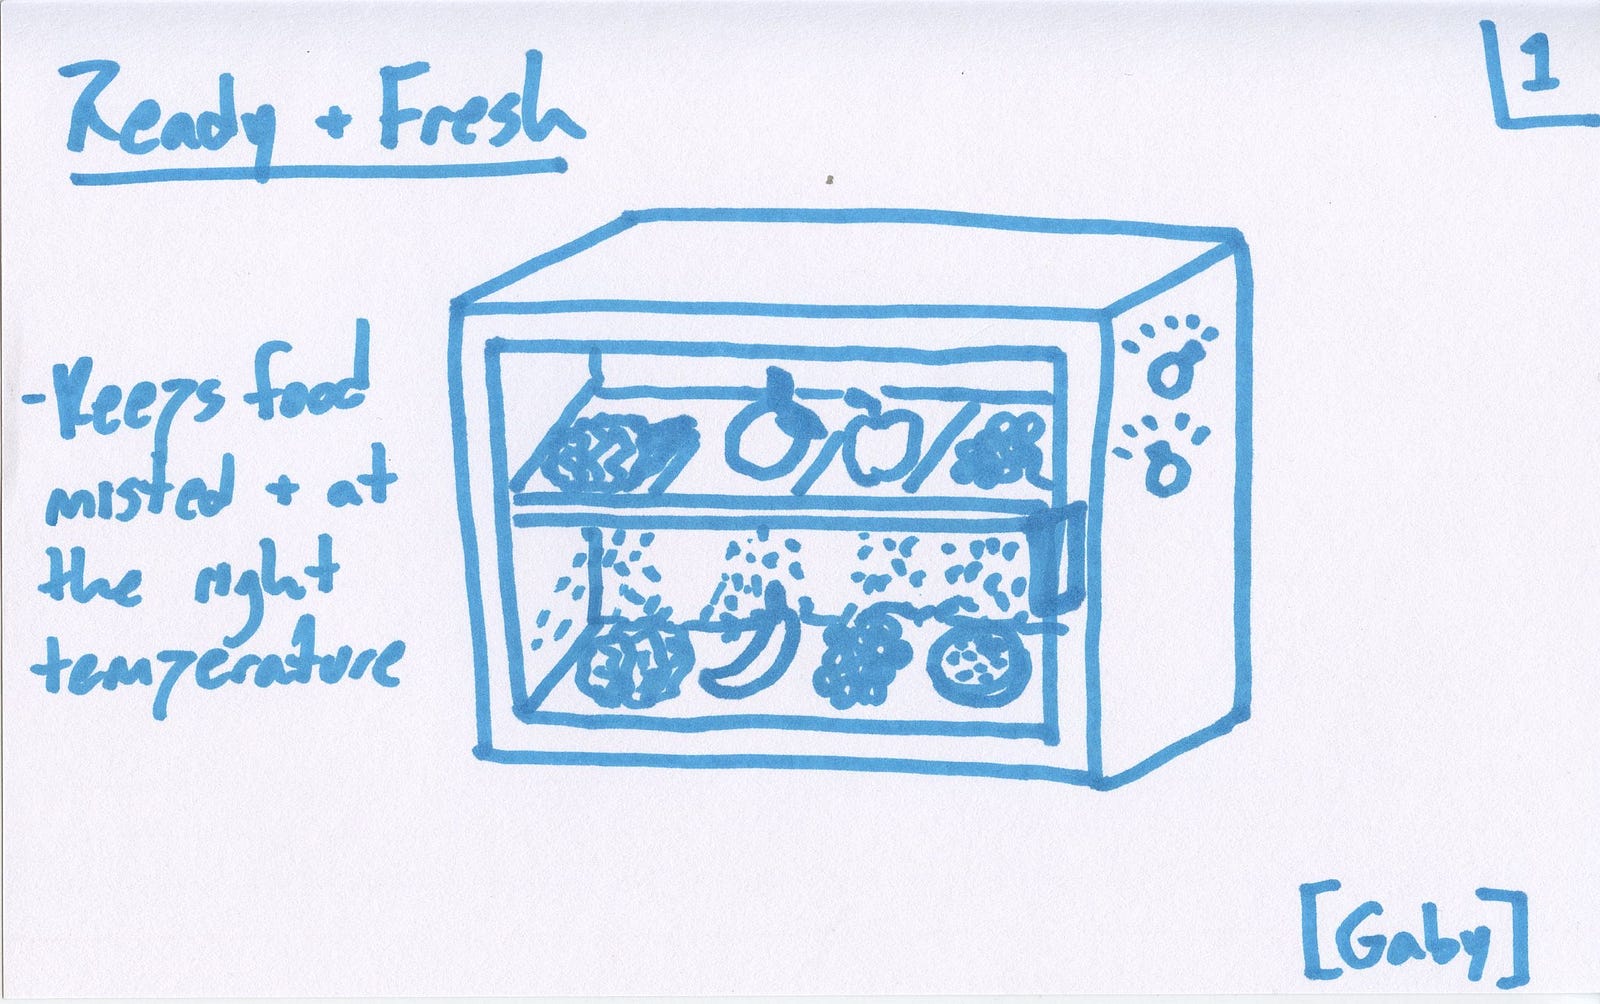 Ready + Fresh
1
-Keeps food
misted + at
the right
temperature
[Gaby]